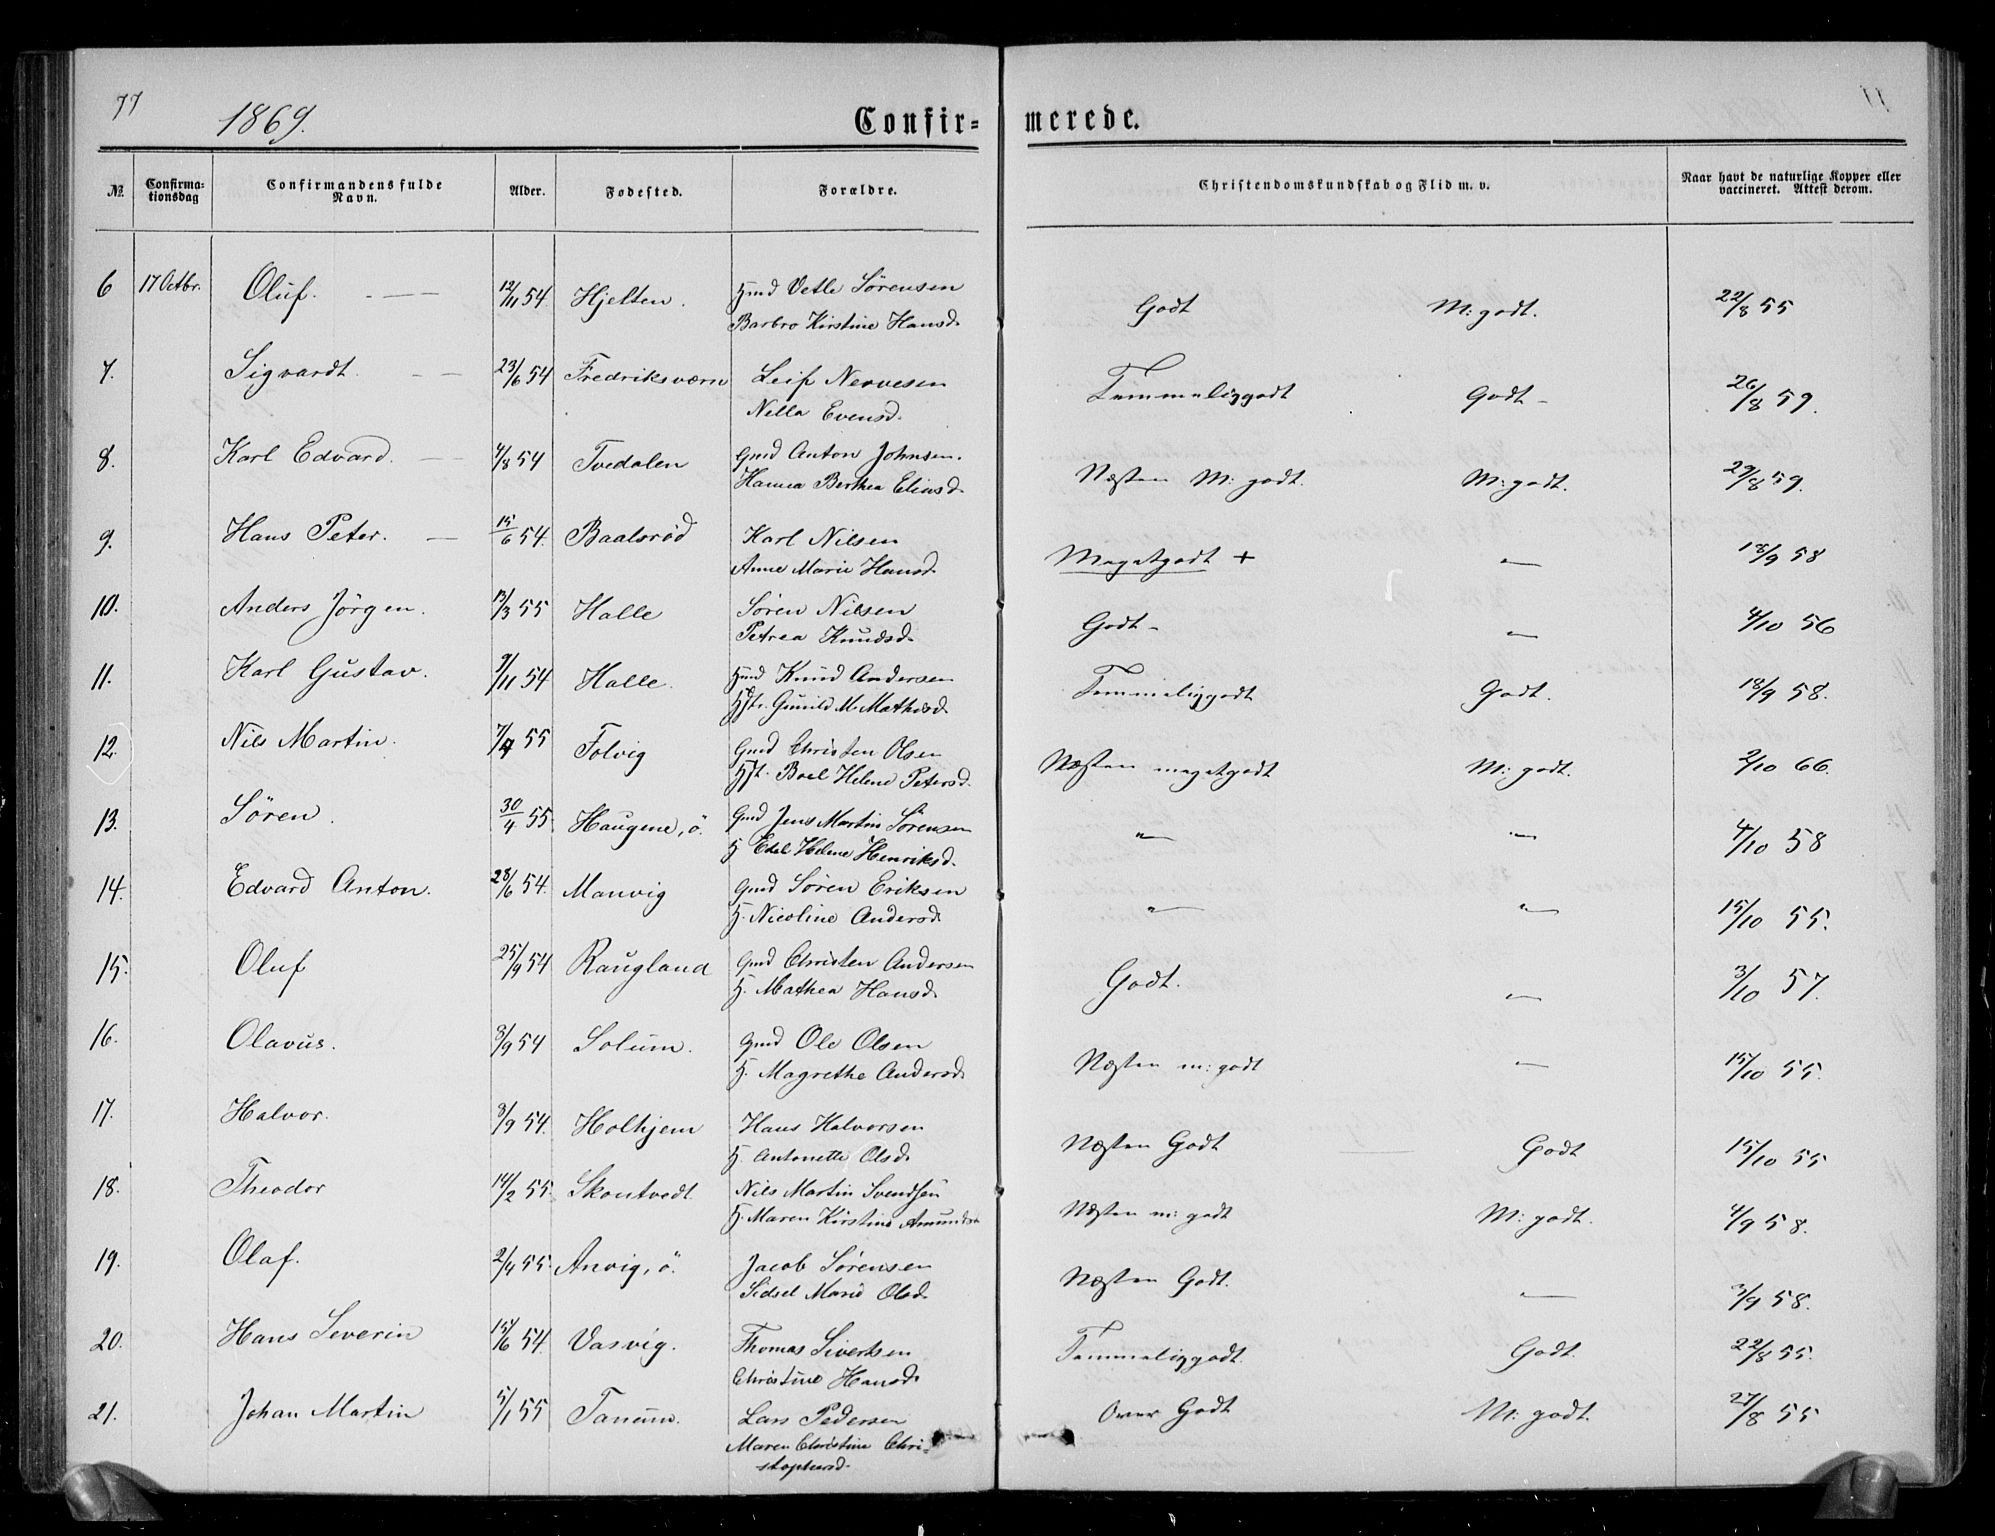 77
1869.
Confir-
merede.
77
No.
Confirma-
tionsdag
Confirmandens fulde
Navn.
Alder.
Fødested.
Forældre.
Christendomskundskab og Flid m. v.
Naar havt de naturlige Kopper eller
vaccineret. Attest derom.
6 17 Octbr. Oluf. 12/11 54 Hjelten. Hmd Vetle Sørensen Godt M: godt. 22/8 55
Barbro Kirstine Hansd.
7. Sigvardt. 23/6 54 Fredriksværn Leif Nervesen Temmeliggodt Godt - 26/8 59.
Nella Evensd.
8. Karl Edvard. 4/8 54 Tvedalen Gmd Anton Johnsen. Næsten M: godt. M: godt. 29/8 59.
Hanna Berthea Eliasd.
9. Hans Peter. 15/6 54. Baalsrød Karl Nilsen Megetgodt + " 18/9 58
Anne Marie Hansd.
10. Anders Jörgen. 13/3 55 Halle Søren Nilsen Godt - " 4/10 56
Petrea Knudsd.
11. Karl Gustav. 9/11 54 Halle. Hmd Knud Andersen Temmeliggodt Godt. 18/9 58.
Hst. Gunild M. Mathisd.
12. Nils Martin. 7/4 55 Folvig Gmd Christen Olsen Næsten megetgodt M: godt. 2/10 66.
Hst. Boel Helene Petersd.
13. Søren. 30/4 55. Haugene, ö. Gmd Jens Martin Sørensen " " 4/10 58
H. Edel Helene Henriksd.
14. Edvard Anton. 28/6 54. Manvig Gmd Søren Eriksen " " 15/10 55.
H. Nicoline Andersd.
15. Oluf 25/9 54 Raugland Gmd Christen Andersen Godt. " 3/10 57.
H. Mathea Hansd.
16. Olavus. 8/9 54 Solum. Gmd Ole Olsen Næsten m: godt " 15/10 55.
H. Magrethe Andersd.
17. Halvor. 8/9 54. Holhjem Hans Halvorsen Næsten Godt Godt 15/10 55
H. Antonette Olsd.
18. Theodor 14/2 55. Skontvedt Nils Martin Svendsen Næsten m: godt M: godt. 4/9 58.
H. Maren Kirstine Amunds
19. Olaf. 2/4 55. Anvig, ö. Jacob Sørensen Næsten Godt. " 3/9 58.
Sidsel Marie Olsd.
20. Hans Severin 15/6 54 Vasvig. Thomas Sivertsen Temmeliggodt. Godt. 22/8 55.
Christine Hansd.
21. Johan Martin 5/1 55 Tanum. Lars Pedersen Over Godt M: godt. 27/8 55
Maren Christine Chri-
stophersd.